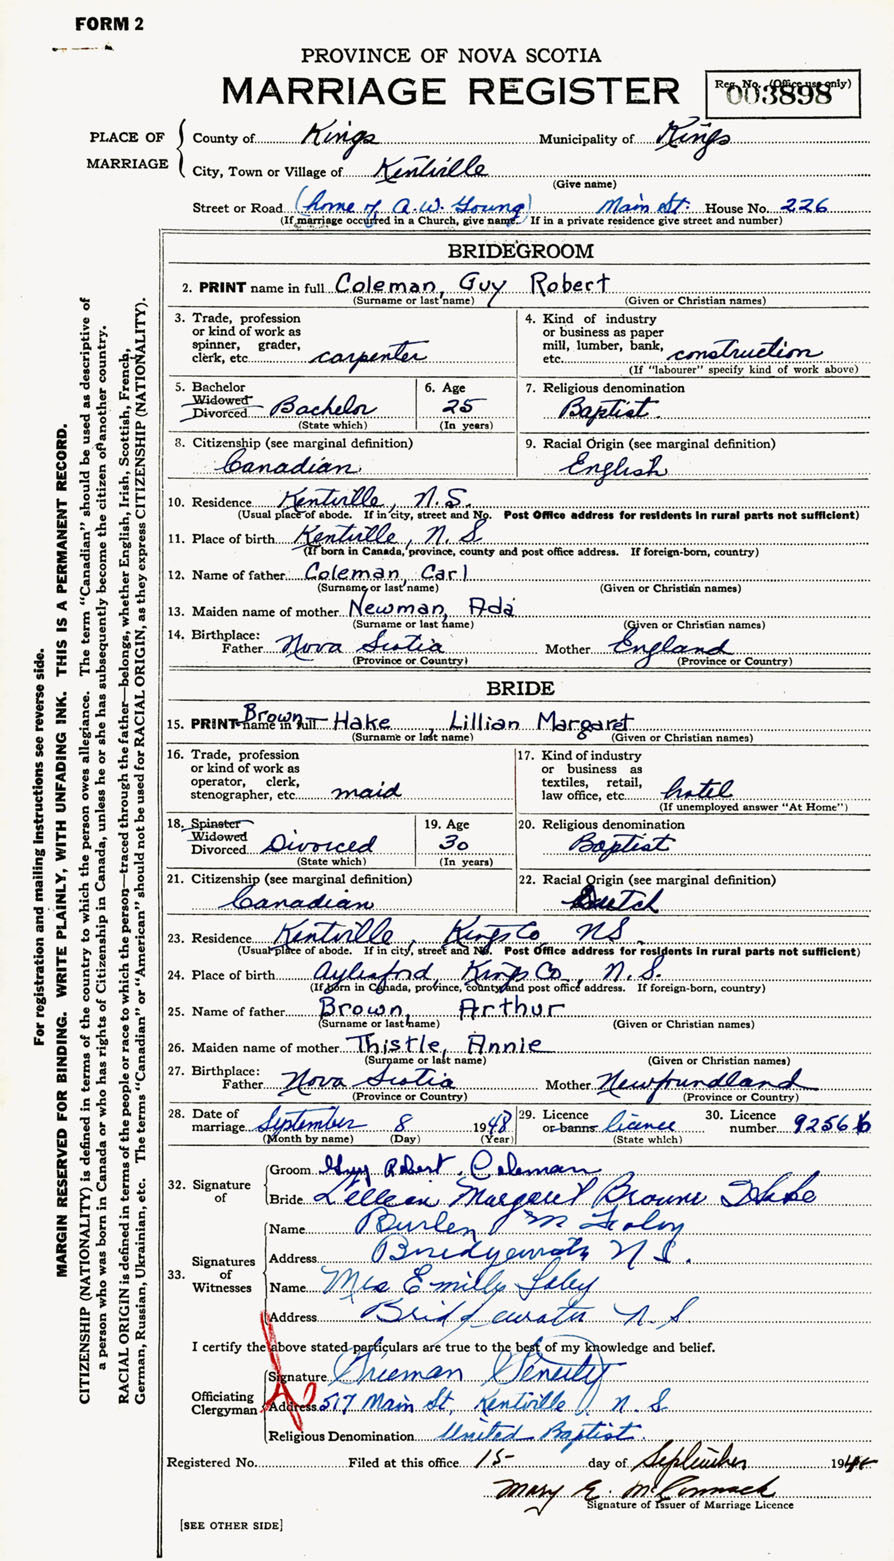 FORM 2
PROVINCE OF NOVA SCOTIA
MARRIAGE REGISTER
Reg. No. (Office use only)
003898
PLACE OF MARRIAGE
County of Kings Municipality of Kings
City, Town or Village of Kentville
(Give name)
Street or Road (home of A.W. Young) Main St. House No. 226
(If marriage occurred in a Church, give name. If in a private residence give street and number)
BRIDEGROOM
2. PRINT name in full Coleman, Guy Robert
(Surname or last name) (Given or Christian names)
3. Trade, profession or kind of work as spinner, grader, clerk, etc. carpenter
4. Kind of industry or business as paper mill, lumber, bank, etc. construction
(If "labourer" specify kind of work above)
5. Bachelor Widowed Divorced Bachelor
(State which)
6. Age 25
(In years)
7. Religious denomination
Baptist
8. Citizenship (see marginal definition)
Canadian
9. Racial Origin (see marginal definition)
English
10. Residence Kentville, N.S.
(Usual place of abode. If in city, street and No. Post Office address for residents in rural parts not sufficient)
11. Place of birth Kentville, N. S
(If born in Canada, province, county and post office address. If foreign-born, country)
12. Name of father Coleman, Carl
(Surname or last name) (Given or Christian names)
13. Maiden name of mother Newman, Ada
(Surname or last name) (Given or Christian names)
14. Birthplace:
Father Nova Scotia Mother England
(Province or Country) (Province or Country)
BRIDE
15. PRINT name in full Brown Hake, Lillian Margaret
(Surname or last name) (Given or Christian names)
16. Trade, profession or kind of work as operator, clerk, stenographer, etc. maid
17. Kind of industry or business as textiles, retail, law office, etc. hotel
(If unemployed answer "At Home")
18. Spinster Widowed Divorced Divorced
(State which)
19. Age 30
(In years)
20. Religious denomination
Baptist
21. Citizenship (see marginal definition)
Canadian
22. Racial Origin (see marginal definition)
Dutch
23. Residence Kentville, Kings Co NS.
(Usual place of abode. If in city, street and No. Post Office address for residents in rural parts not sufficient)
24. Place of birth Aylesford, Kings Co, N.S.
(If born in Canada, province, county and post office address. If foreign-born, country)
25. Name of father Brown, Arthur
(Surname or last name) (Given or Christian names)
26. Maiden name of mother Thistle, Annie
(Surname or last name) (Given or Christian names)
27. Birthplace:
Father Nova Scotia Mother Newfoundland
(Province or Country) (Province or Country)
28. Date of marriage September 8 1948
(Month by name) (Day) (Year)
29. Licence or banns licence
(State which)
30. Licence number 92566
32. Signature of
Groom Guy Robert Coleman
Bride Lillian Margaret Browne Hake
33. Signatures of Witnesses
Name Burlen M Foley
Address Bridgewater N S.
Name Mrs Emily Foley
Address Bridgewater N. S
I certify the above stated particulars are true to the best of my knowledge and belief.
Officiating Clergyman
Signature Freeman Fenerty
Address 517 Main St, Kentville, N. S
Religious Denomination United Baptist.
Registered No. Filed at this office 15- day of September 19
Mary E. McCormack
Signature of Issuer of Marriage Licence
[SEE OTHER SIDE]
For registration and mailing instructions see reverse side.
MARGIN RESERVED FOR BINDING. WRITE PLAINLY, WITH UNFADING INK. THIS IS A PERMANENT RECORD.
CITIZENSHIP (NATIONALITY) is defined in terms of the country to which the person owes allegiance. The term "Canadian" should be used as descriptive of
a person who was born in Canada or who has rights of Citizenship in Canada, unless he or she has subsequently become the citizen of another country.
RACIAL ORIGIN is defined in terms of the people or race to which the person—traced through the father—belongs, whether English, Irish, Scottish, French,
German, Russian, Ukrainian, etc. The terms "Canadian" or "American" should not be used for RACIAL ORIGIN, as they express CITIZENSHIP (NATIONALITY).